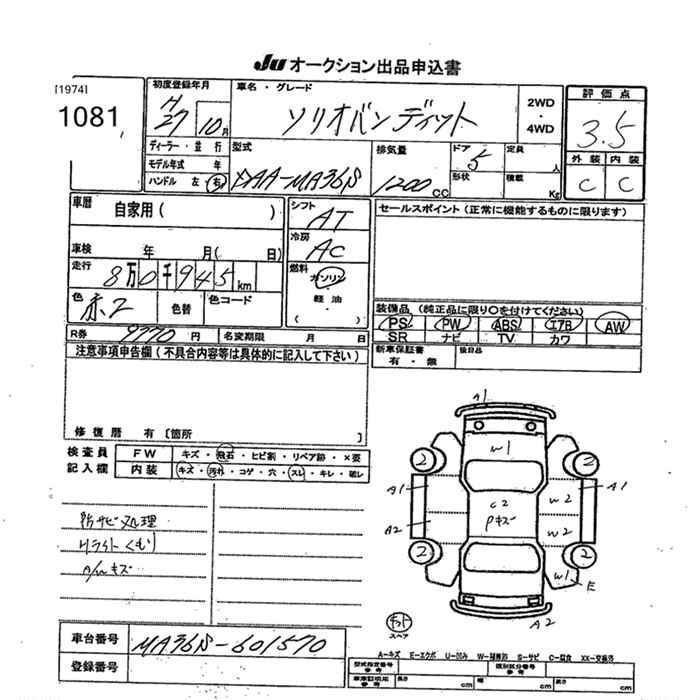 JU オークション出品申込書
[1974]
1081
初度登録年月
H 27 10月
車名・グレード
ソリオバンディット
2WD
・
4WD
評価点
3.5
外装 内装
C C
ディーラー・並行
モデル年式 年
ハンドル 左 右
型式
DAA-MA36S
排気量
1200 CC
ドア
5
形状
定員 人
積載 Kg
車歴
自家用( )
車検 年 月( 日)
走行
8万0千945km
色
赤2
色替
色コード
シフト
AT
冷房
AC
燃料
ガソリン
軽油
( ・ )
セールスポイント(正常に機能するものに限ります)
装備品(純正品に限り○を付けてください)
PS PW ABS エアB AW
SR ナビ TV カワ
新車保証書
有・無
後日品
R券 9770 円 名変期限 月 日
注意事項申告欄(不具合内容等は具体的に記入して下さい)
修復歴 有〔箇所 〕
検査員
記入欄
FW キズ・飛石・ヒビ割・リペア跡・×要
内装 キズ・汚れ・コゲ・穴・スレ・キレ・破レ
防サビ処理
Hライトくもり
A/wキズ
A1
W1
2 2
A1 W2 A1
C2
Pキズ
A2 W2
2 2
W1 E
A2
キット
スペア
車台番号 MA36S-601570
登録番号
A-キズ E-エクボ U-凹み W-補修跡 S-サビ C-腐食 XX-交換済
型式指定番号
参考
類別区分番号
参考
車庫証明用
参考
長さ cm 幅 cm 高さ cm